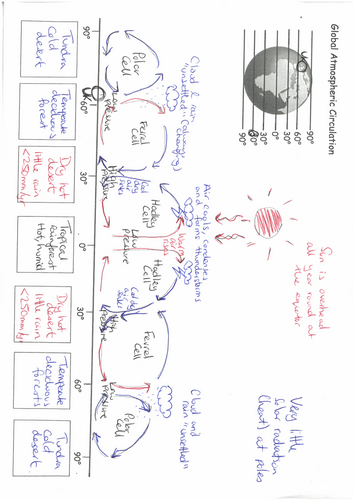 Global Atmospheric Circulation
90°
60°
30°
0°
30°
60°
90°
UK
Sun is overhead
all year round at
the equator
Very little
solar radiation
(heat) at poles
Air cools, condenses
and forms thunderstorms
Cloud & rain
"unsettled"
changing)
Cloud and
rain "unsettled"
Warm
air
rises
Polar
Cell
Ferrel
Cell
Hadley
Cell
Hadley
Cell
Ferrel
Cell
Polar
Cell
Low
pressure
High
pressure
Low
pressure
High
pressure
Low
pressure
90°
60°
UK
30°
0°
30°
60°
90°
Tundra
Cold
desert
Temperate
deciduous
forest
Dry, hot
desert
little rain
<250mm/yr
Tropical
rainforest
Hot, humid
Dry hot
desert
little rain
<250mm/yr
Temperate
deciduous
forests
Tundra
Cold
desert